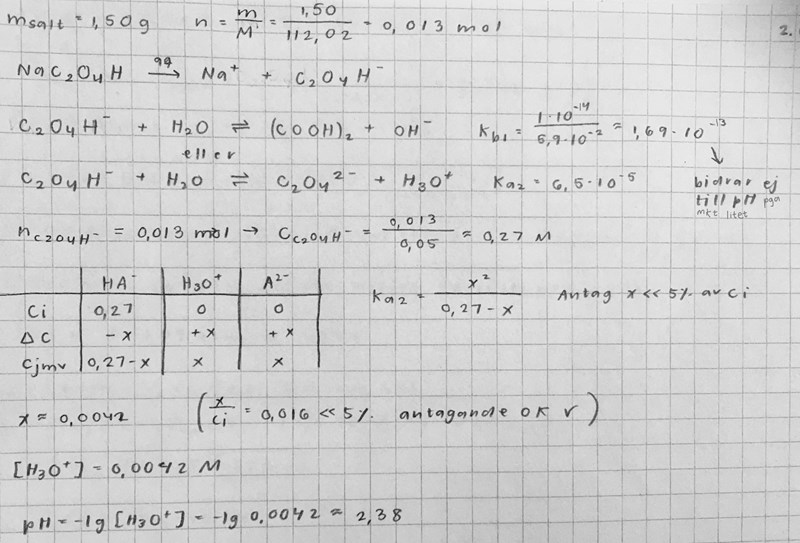 m salt = 1,50 g n = m/M = 1,50/112,02 = 0,013 mol
2.
NaC₂O₄H →(aq) Na⁺ + C₂O₄H⁻
C₂O₄H⁻ + H₂O ⇌ (COOH)₂ + OH⁻ K_b1 = 1·10⁻¹⁴/5,9·10⁻² = 1,69·10⁻¹³
eller
↓
C₂O₄H⁻ + H₂O ⇌ C₂O₄²⁻ + H₃O⁺ Ka₂ = 6,5·10⁻⁵ bidrar ej
till pH pga
mkt litet
n C₂O₄H⁻ = 0,013 mol → C C₂O₄H⁻ = 0,013/0,05 = 0,27 M
HA⁻ H₃O⁺ A²⁻
Ci 0,27 0 0 Ka₂ = x²/(0,27-x) Antag x << 5% av Ci
ΔC -x +x +x
Cjmv 0,27-x x x
x ≈ 0,0042 (x/Ci = 0,016 << 5% antagande OK v)
[H₃O⁺] = 0,0042 M
pH = -lg [H₃O⁺] = -lg 0,0042 ≈ 2,38